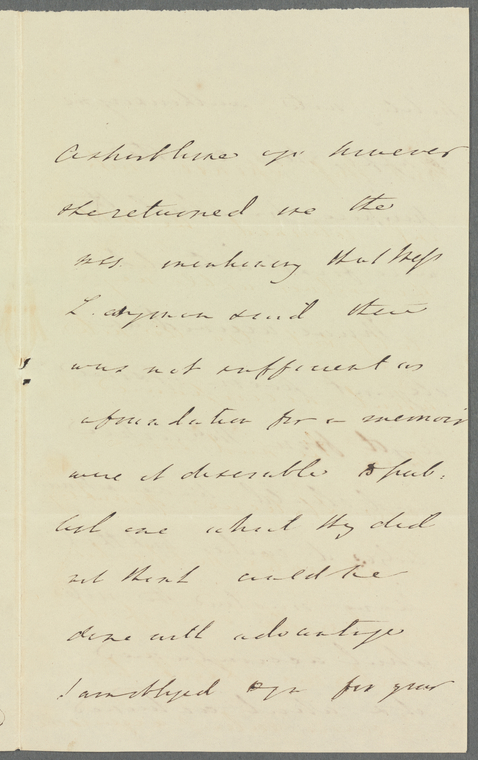 A short time ago however
she returned me the
mss. mentioning that Mess
L. ongman said there
was not sufficient as
a foundation for a memoir
were it desirable to pub:
lish one which they did
not think could be
done with advantage
I am obliged to you for your